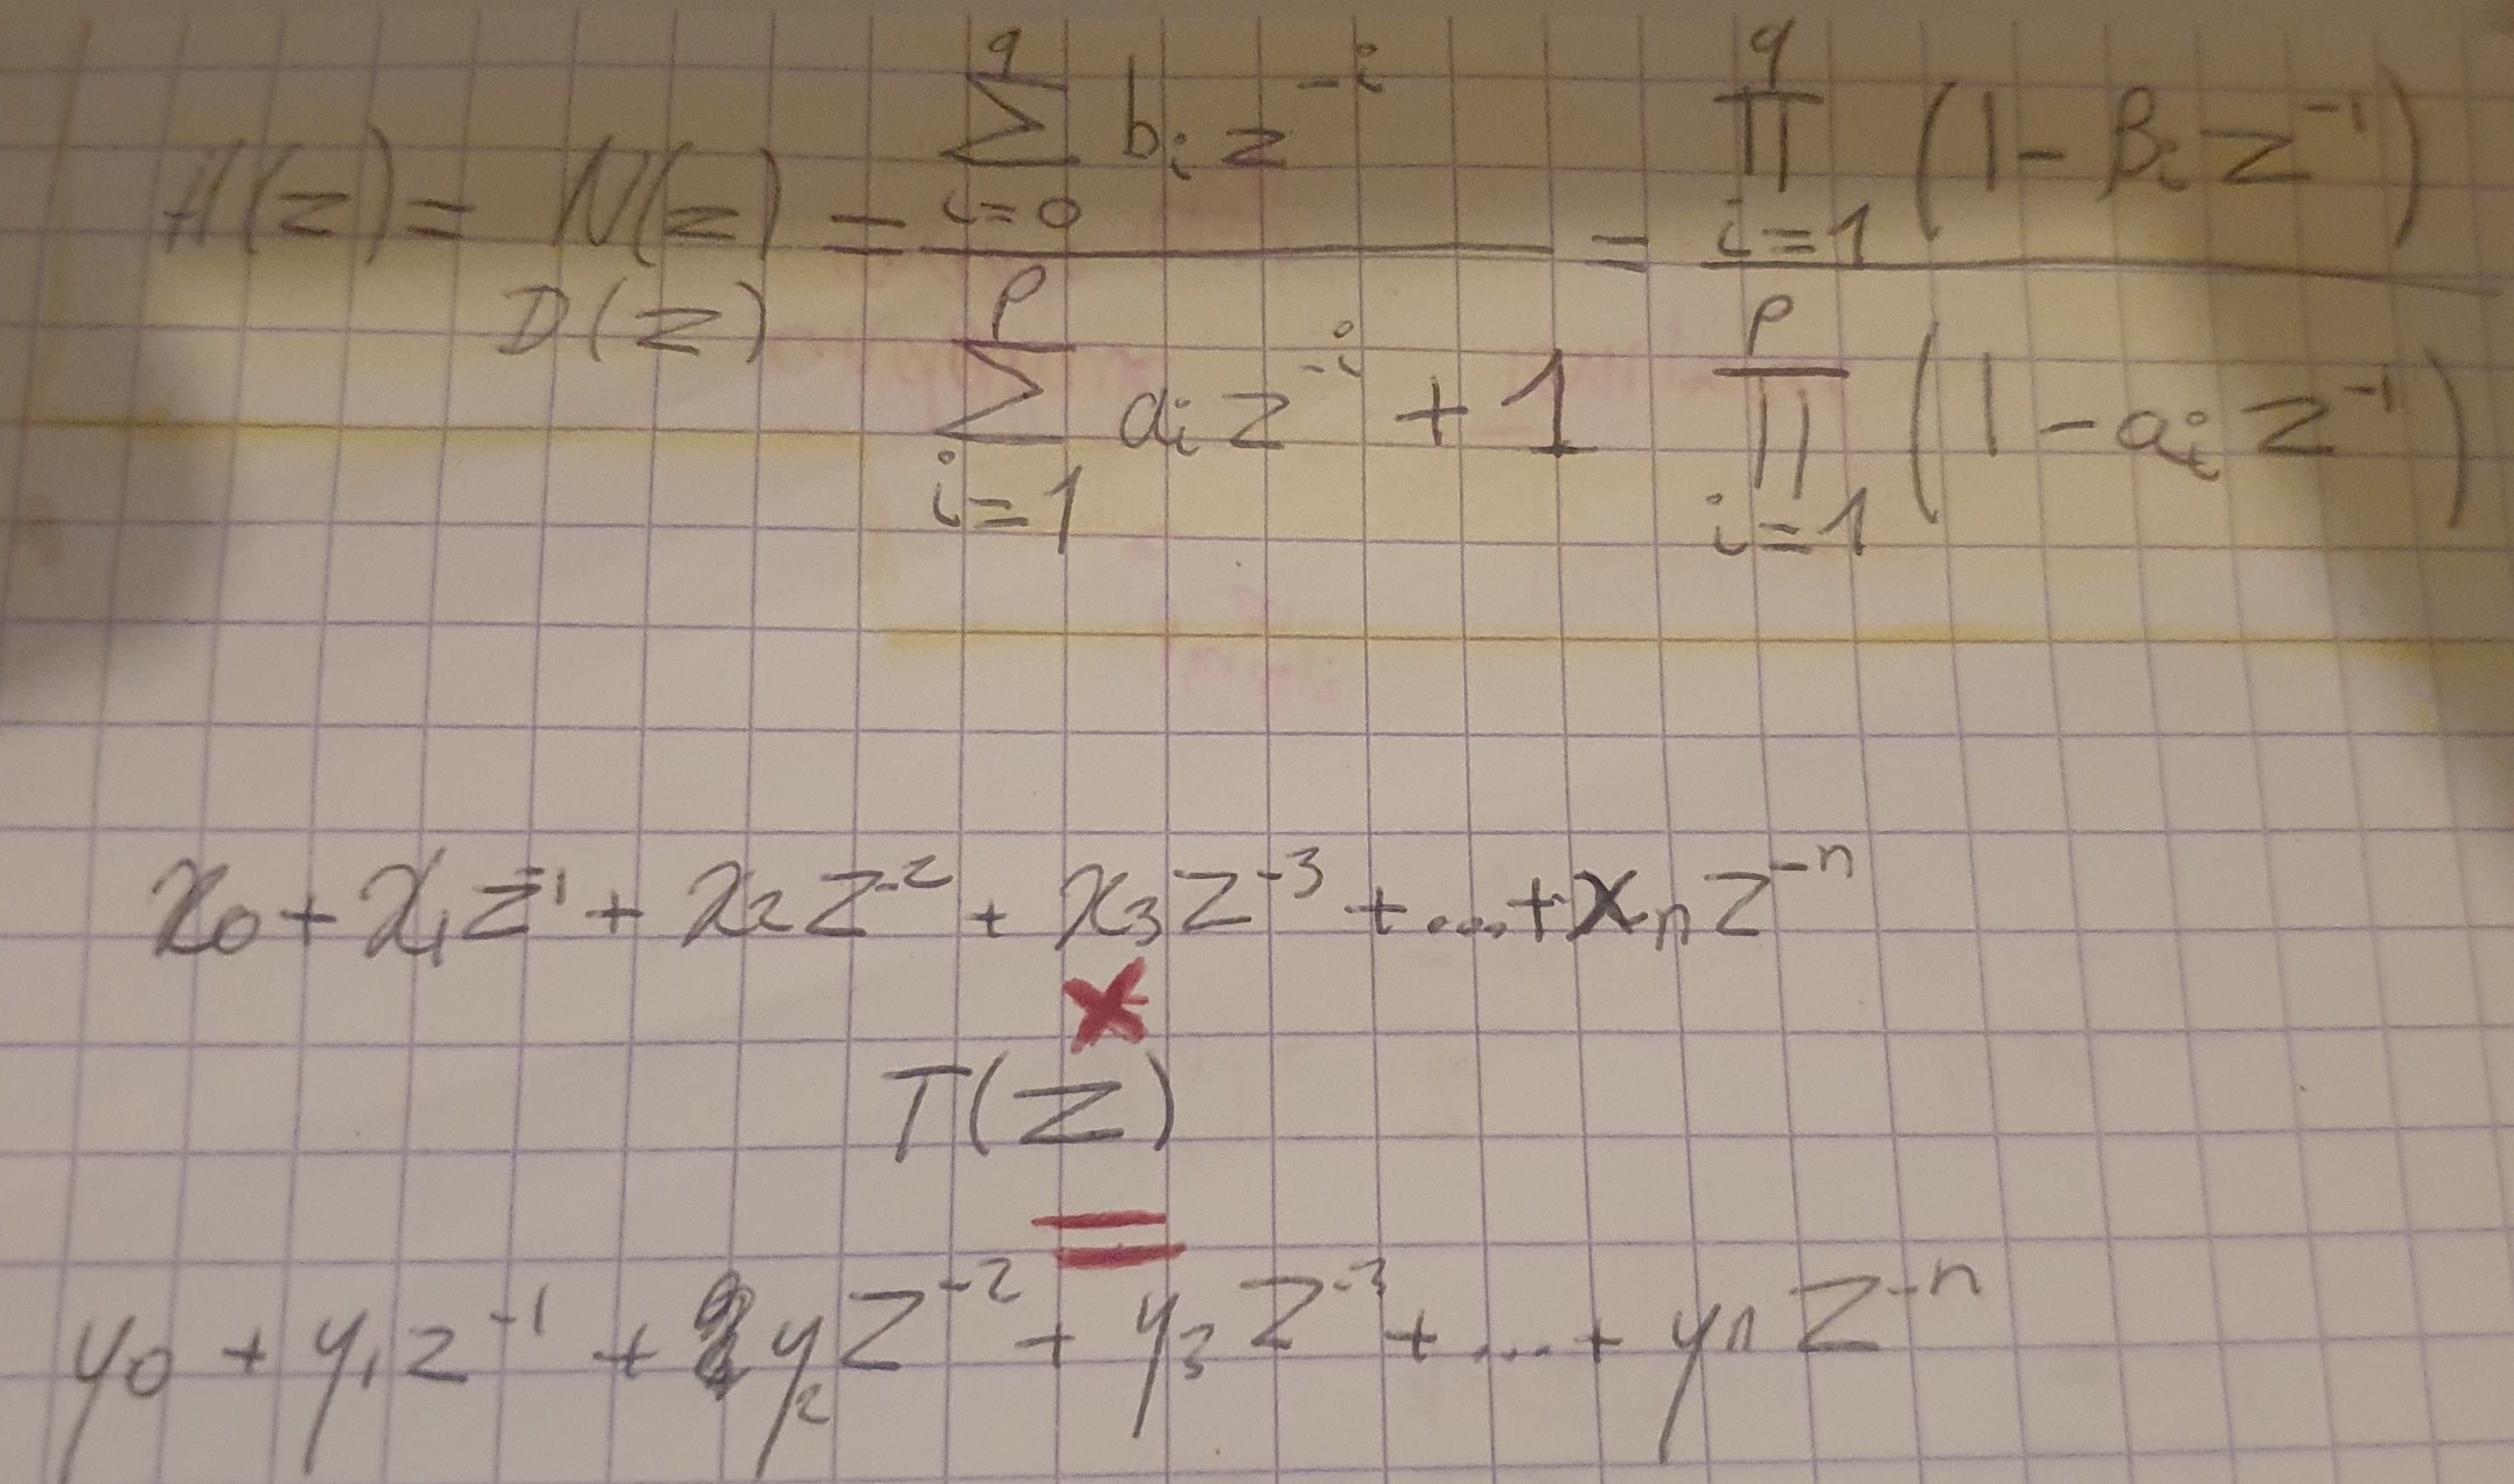 H(z) = N(z) / D(z) = ∑_{i=0}^{q} b_i z^{-i} / ∑_{i=1}^{p} a_i z^{-i} + 1 = ∏_{i=1}^{q} (1 - β_i z^{-1}) / ∏_{i=1}^{p} (1 - a_i z^{-1})
x_0 + x_1 z^{-1} + x_2 z^{-2} + x_3 z^{-3} + ... + x_n z^{-n}
×
T(z)
=
y_0 + y_1 z^{-1} + y_2 z^{-2} + y_3 z^{-3} + ... + y_n z^{-n}